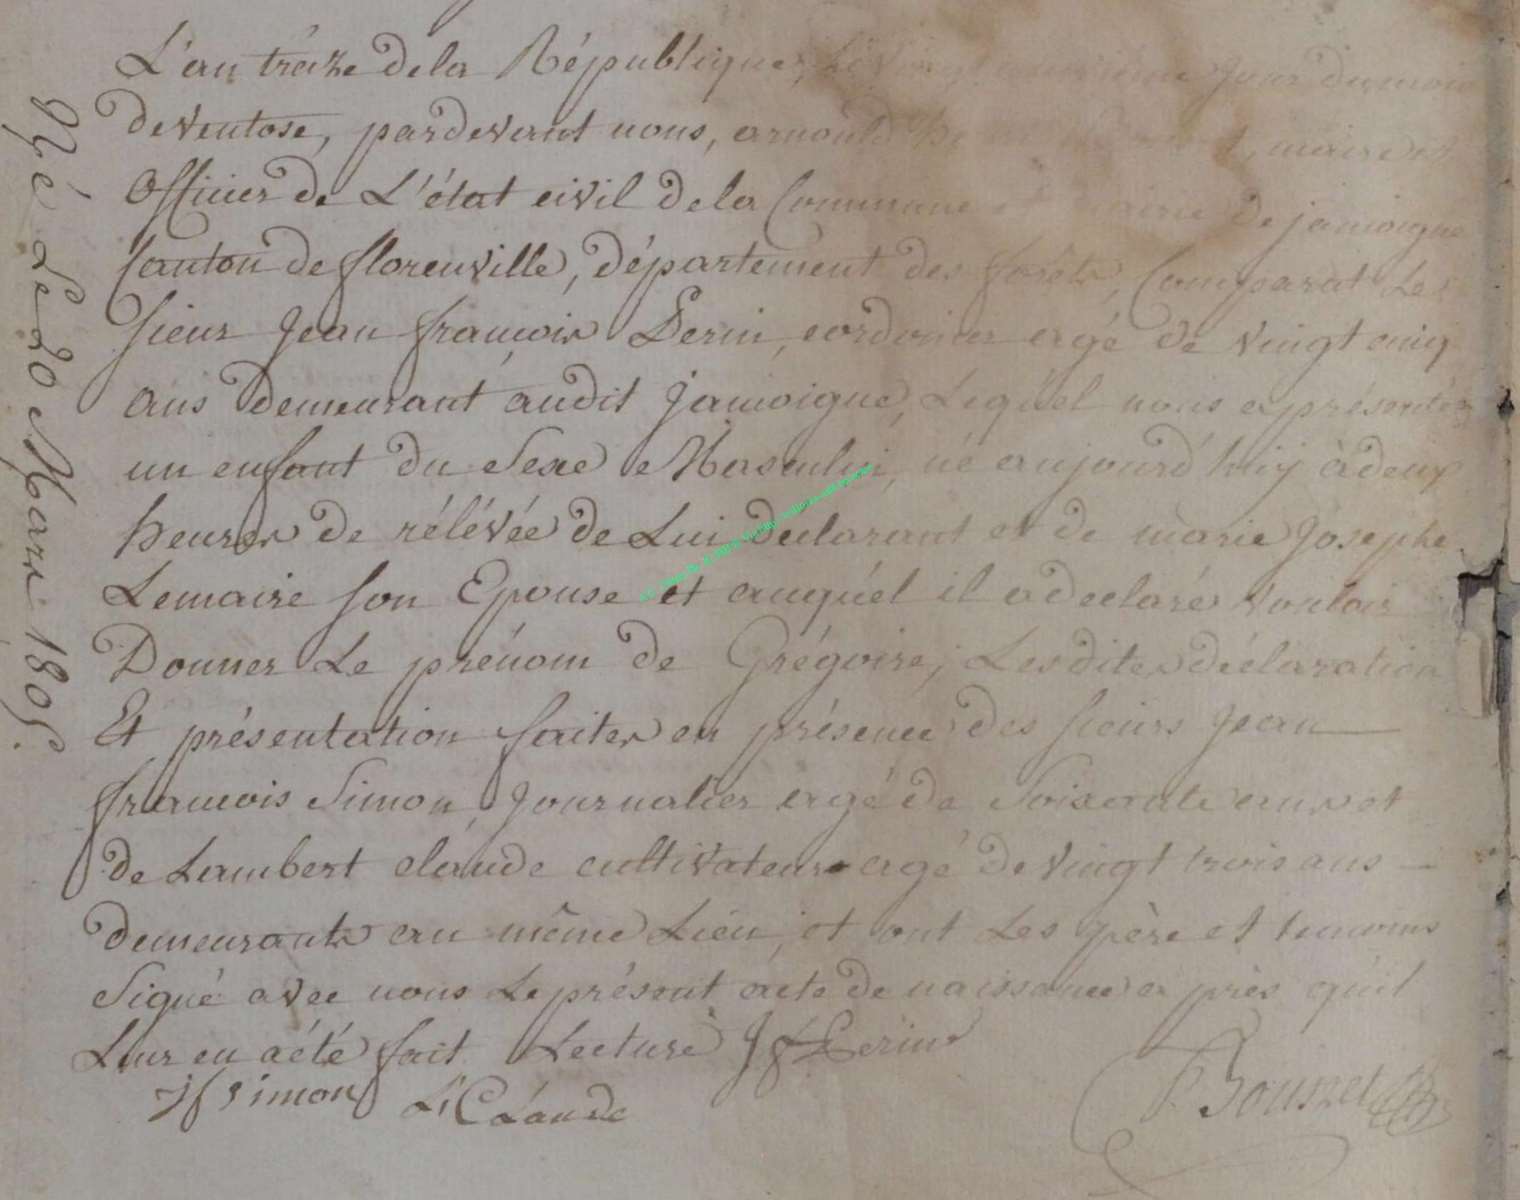 Né Le 20 Mars 1805.
L'an treize de la République, Le vingt neuvième jour du mois
de ventose, pardevant nous, arnould maire et
Officier de L'état civil de la Commune et mairie de jamoigne
Canton de florenville, département des forêts, Comparat Le
sieur Jean francois Perin, cordonier agé de vingt cinq
ans demeurant audit jamoigne, Lequel nous a présenté
un enfant du Sexe Masculin, né aujourd'huy à deux
heures de rélévée de Lui declarant et de marie Josephe
Lemaire son Epouse et auquél il a declaré vouloir
Donner Le prénom de Grégoire; Lesdites déclaration
Et présentation faites en présence des sieurs Jean
francois Simon, Journalier agé de Soixante ans et
de Lambert claude cultivateur agé de vingt trois ans
demeurants au même Lieu, et ont Les père et temoins
Signé avec nous Le présent acte de naissance après qu'il
Leur en a été fait Lecture J f Perin
jf simon L. Claude Bousret